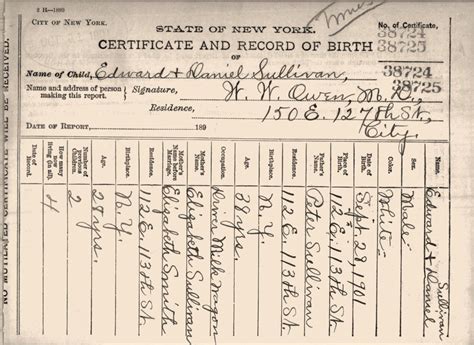 2 H—1899
CITY OF NEW YORK.
STATE OF NEW YORK.
Twins
No. of Certificate,
CERTIFICATE AND RECORD OF BIRTH
38724
38725
OF
Name of Child, Edward & Daniel Sullivan,
38724
38725
Name and address of person making this report.
Signature, W. W. Owen, M.D.,
Residence, 150 E. 127th St,
City.
DATE OF REPORT, 189
Name. Edward & Daniel Sullivan
Sex. Male
Color. White
Date of Birth. Sept. 28, 1901
Place of Birth. 112 E. 113th St.
Father's Name. Peter Sullivan
Residence. 112 E. 113th St.
Birthplace. N. Y.
Age. 38 yrs.
Occupation. Drives Milk Wagon
Mother's Name. Elizabeth Sullivan
Mother's Name before Marriage. Elizabeth Smith
Residence. 112 E. 113th St.
Birthplace. N. Y.
Age. 28 yrs.
Number of previous Children. 2
How many now living (in all). 4
Date of Record.
NO MUTILATED CERTIFICATE WILL BE RECEIVED.